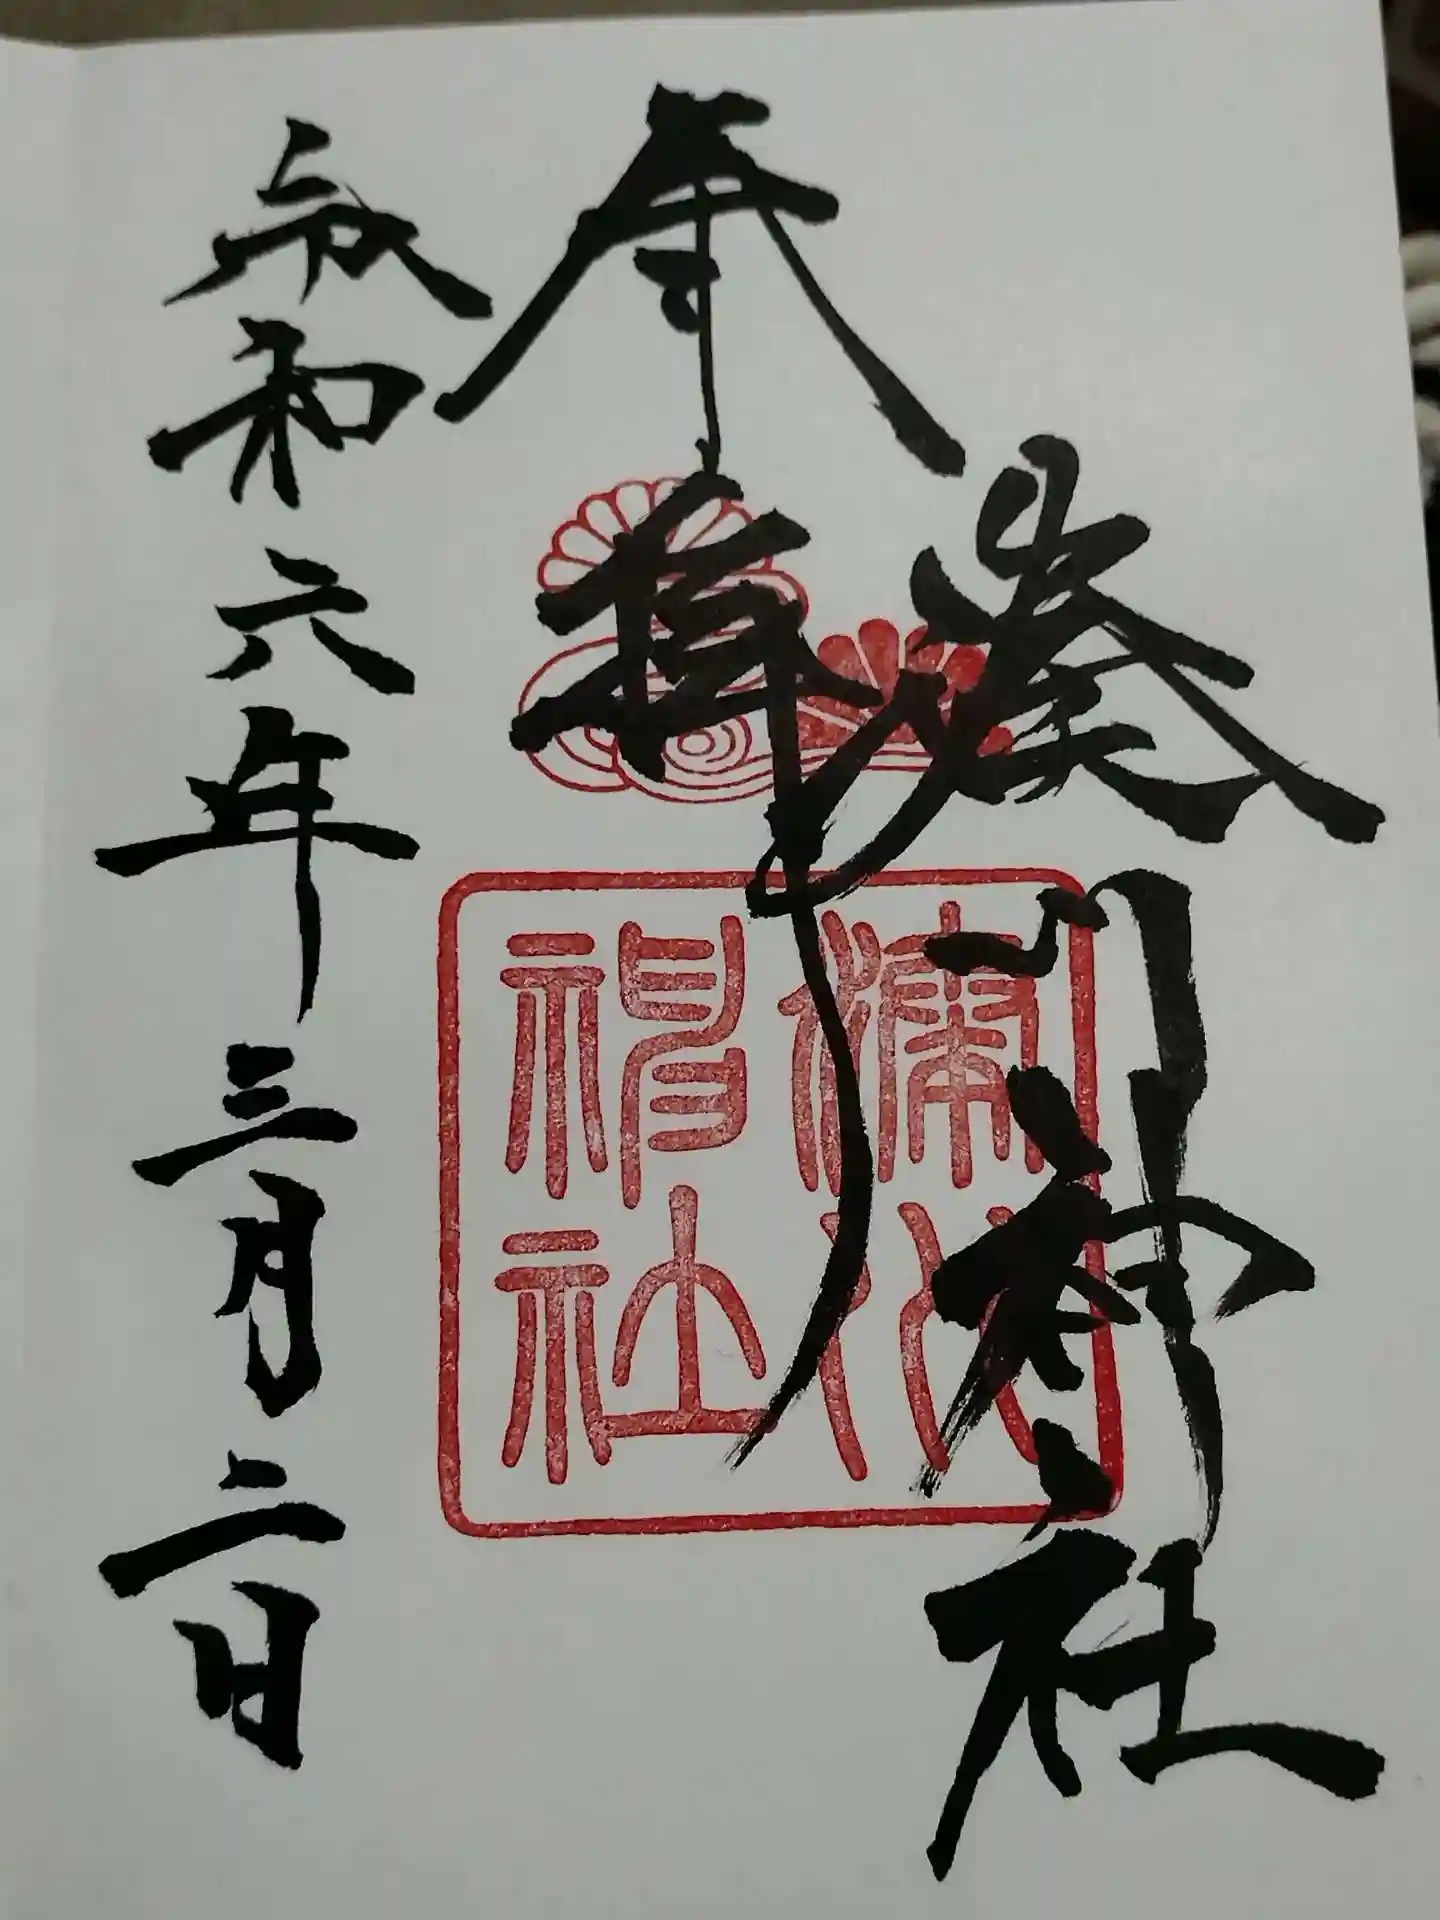 奉拝
湊川神社
湊川神社
令和六年三月二日